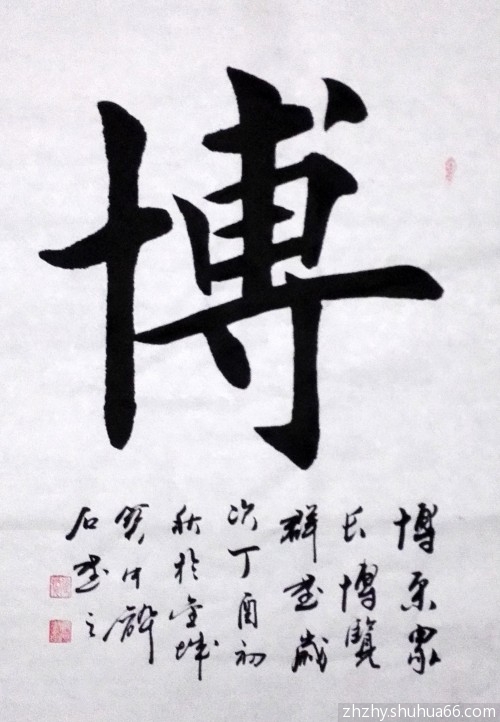 博
博采眾
长博覽
群书歲
次丁酉初
秋於金城
石书之
zhzhy.shuhua66.com